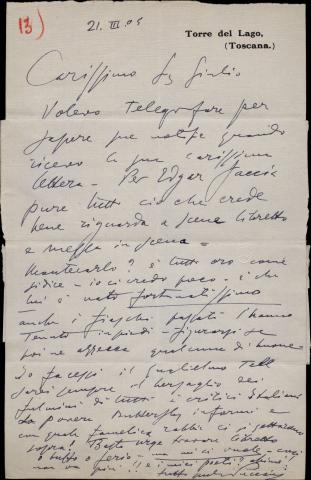 13)
21. III 05
Torre del Lago,
(Toscana.)
Carissimo Sg Giulio
Volevo telegrafare per
sapere sue notizie quando
ricevo la sua carissima
lettera - Per Edgar faccia
pure tutto ciò che crede
bene riguardo a scene libretto
e messa in scena =
Montecarlo? è tutto oro come
si dice - io ci credo poco - è che
lui è nato fortunatissimo
anche i fiaschi passati l'hanno
tenuto in piedi - figurarsi se
poi ne azzecca qualcuna di buone
Io facessi il Guglielmo Tell
sarei sempre il bersaglio dei
fulmini di tutti i critici italiani
La povera Butterfly informi e
con quale famelica rabbia ci si gettarono
sopra! Basta urge trovare libretto
o buffo o serio - ma mi ci vuole - così
non va più!! e i miei poeti?
tutto suo Puccini